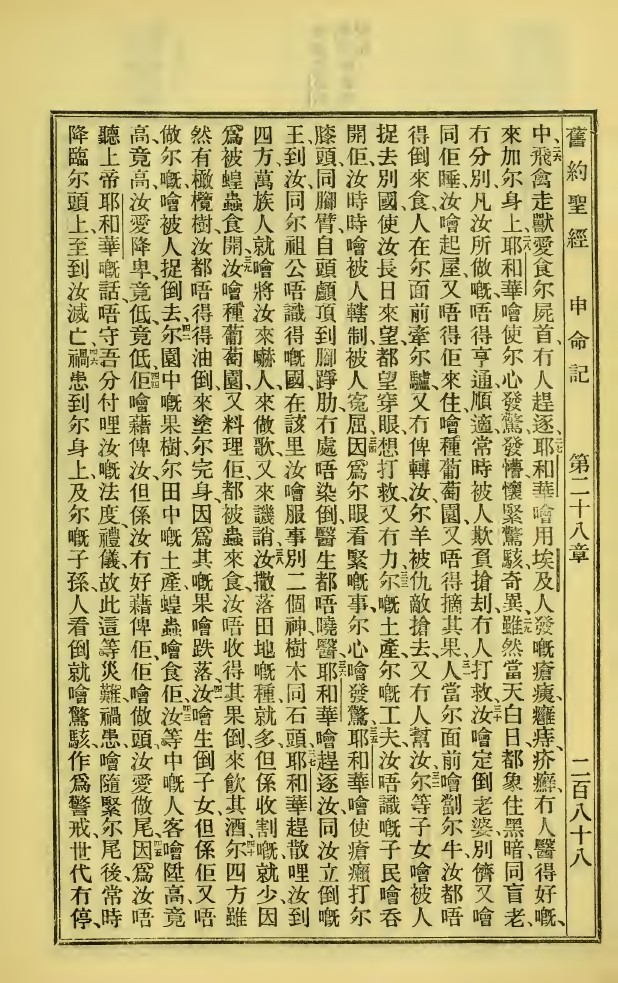 舊約聖經 申命記 第二十八章 二百八十八
中、二六飛禽走獸愛食尔屍首、冇人趕逐、二七耶和華噲用埃及人發嘅瘡痍、癰痔、疥癬、冇人醫得好嘅、
來加尔身上、二八耶和華噲使尔心發驚發懵懷緊驚駭奇異、二九雖然當天白日都象住黑暗同盲老、
冇分別、凡汝所做嘅唔得亨通順適、常時被人欺負搶刦、冇人打救、三十汝噲定倒老婆、別儕又噲
同佢睡、汝噲起屋、又唔得佢來住、噲種葡萄園、又唔得摘其果、三一人當尔面前噲劏尔牛、汝都唔
得倒來食、人在尔面前牽尔驢、又冇俾轉汝、尔羊被仇敵搶去、又冇人幫汝、三二尔等子女噲被人
捉去別國、使汝長日來望、都望穿眼、想打救又冇力、三三尔嘅土產、尔嘅工夫、汝唔識嘅子民噲吞
開佢、汝時時噲被人轄制、被人寃屈、三四因爲尔眼看緊嘅事、尔心噲發驚、三五耶和華噲使瘡癩打尔
膝頭同腳臂、自頭顱頂到腳踭肋、冇處唔染倒、醫生都唔曉醫、三六耶和華噲趕逐汝、同汝立倒嘅
王、到汝同尔祖公唔識得嘅國、在該里汝噲服事別二個神、樹木同石頭、三七耶和華趕散哩汝到
四方萬族、人就噲將汝來嚇人、來做歌、又來譏誚、三八汝撒落田地嘅種就多、但係收割嘅就少、因
爲被蝗蟲食開、三九汝噲種葡萄園、又料理佢、都被蟲來食、汝唔收得其果倒來飲其酒、四十尔四方雖
然有橄欖樹、汝都唔得得油倒、來塗尔完身、因爲其嘅果噲跌落、四一汝噲生倒子女、但係佢又唔
做尔嘅、噲被人捉倒去、四二尔園中嘅果樹、尔田中嘅土產、蝗蟲噲食佢、四三汝等中嘅人客噲陞高竟
高竟高、汝愛降卑竟低竟低、四四佢噲藉俾汝、但係汝冇好藉俾佢、佢噲做頭、汝愛做尾、四五因爲汝唔
聽上帝耶和華嘅話、唔守吾分付哩汝嘅法度禮儀、故此這等災難禍患、噲隨緊尔尾後、常時
降臨尔頭上、至到汝滅亡、四六禍患到尔身上、及尔嘅子孫、人看倒就噲驚駭、作爲警戒、世代冇停、